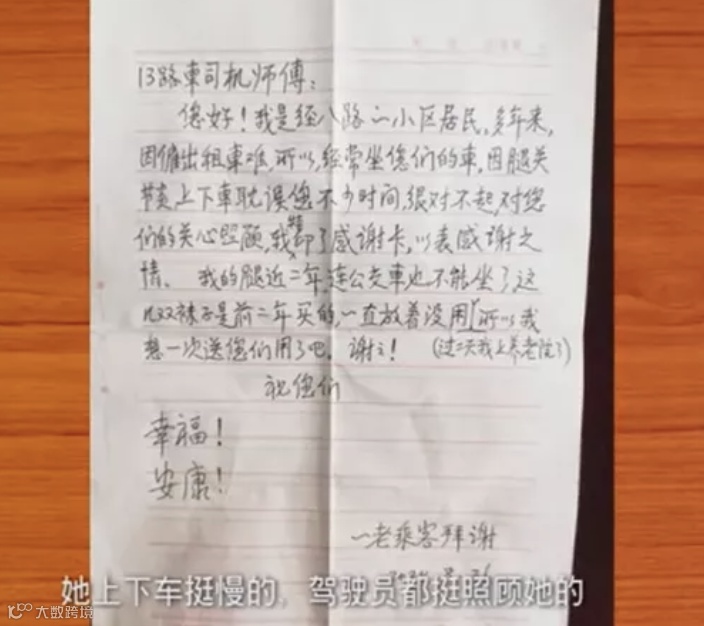 13路車司机师傅：
您好！我是经八路一小区居民，多年来，
因僱出租車难，所以，经常坐您们的車，因腿关
节炎上下車耽误您不少时间，很对不起，对您
们的关心照顾，我特印了感谢卡，以表感谢之
情。 我的腿近二年，连公交車也不能坐了，这
几双袜子是前二年买的，一直放着没用，所以我
想一次送您们用了吧。谢々！ （过二天我上养老院了）
祝您们
幸福！
安康！
一老乘客拜谢
她上下车挺慢的，驾驶员都挺照顾她的
大数跨境